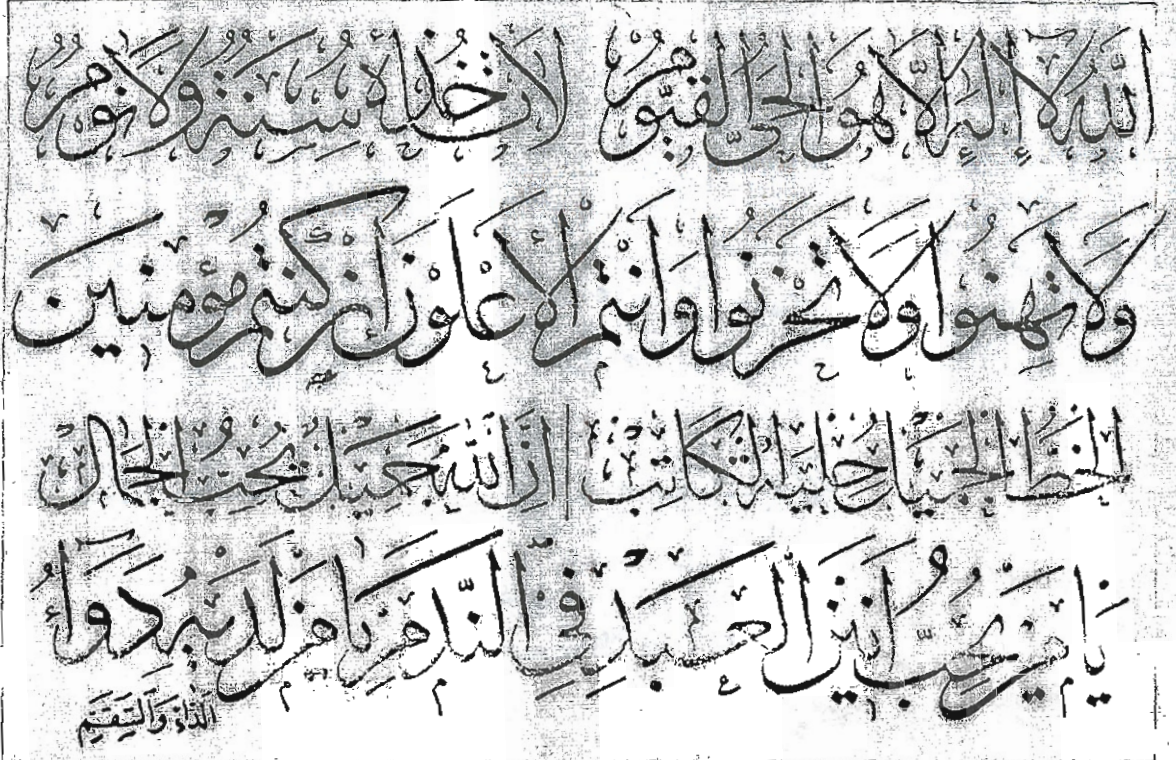 اللَّهُ لَا إِلَهَ إِلَّا هُوَ الْحَيُّ الْقَيُّومُ لَا تَأْخُذُهُ سِنَةٌ وَلَا نَوْمٌ
وَلَا تَهِنُوا وَلَا تَحْزَنُوا وَأَنْتُمُ الْأَعْلَوْنَ إِنْ كُنْتُمْ مُؤْمِنِينَ
الخط الجميل حلية الكاتب إن الله جميل يحب الجمال
يا من يحب أنين العبد في الندم يا من لديه دواء
الداء والسقم